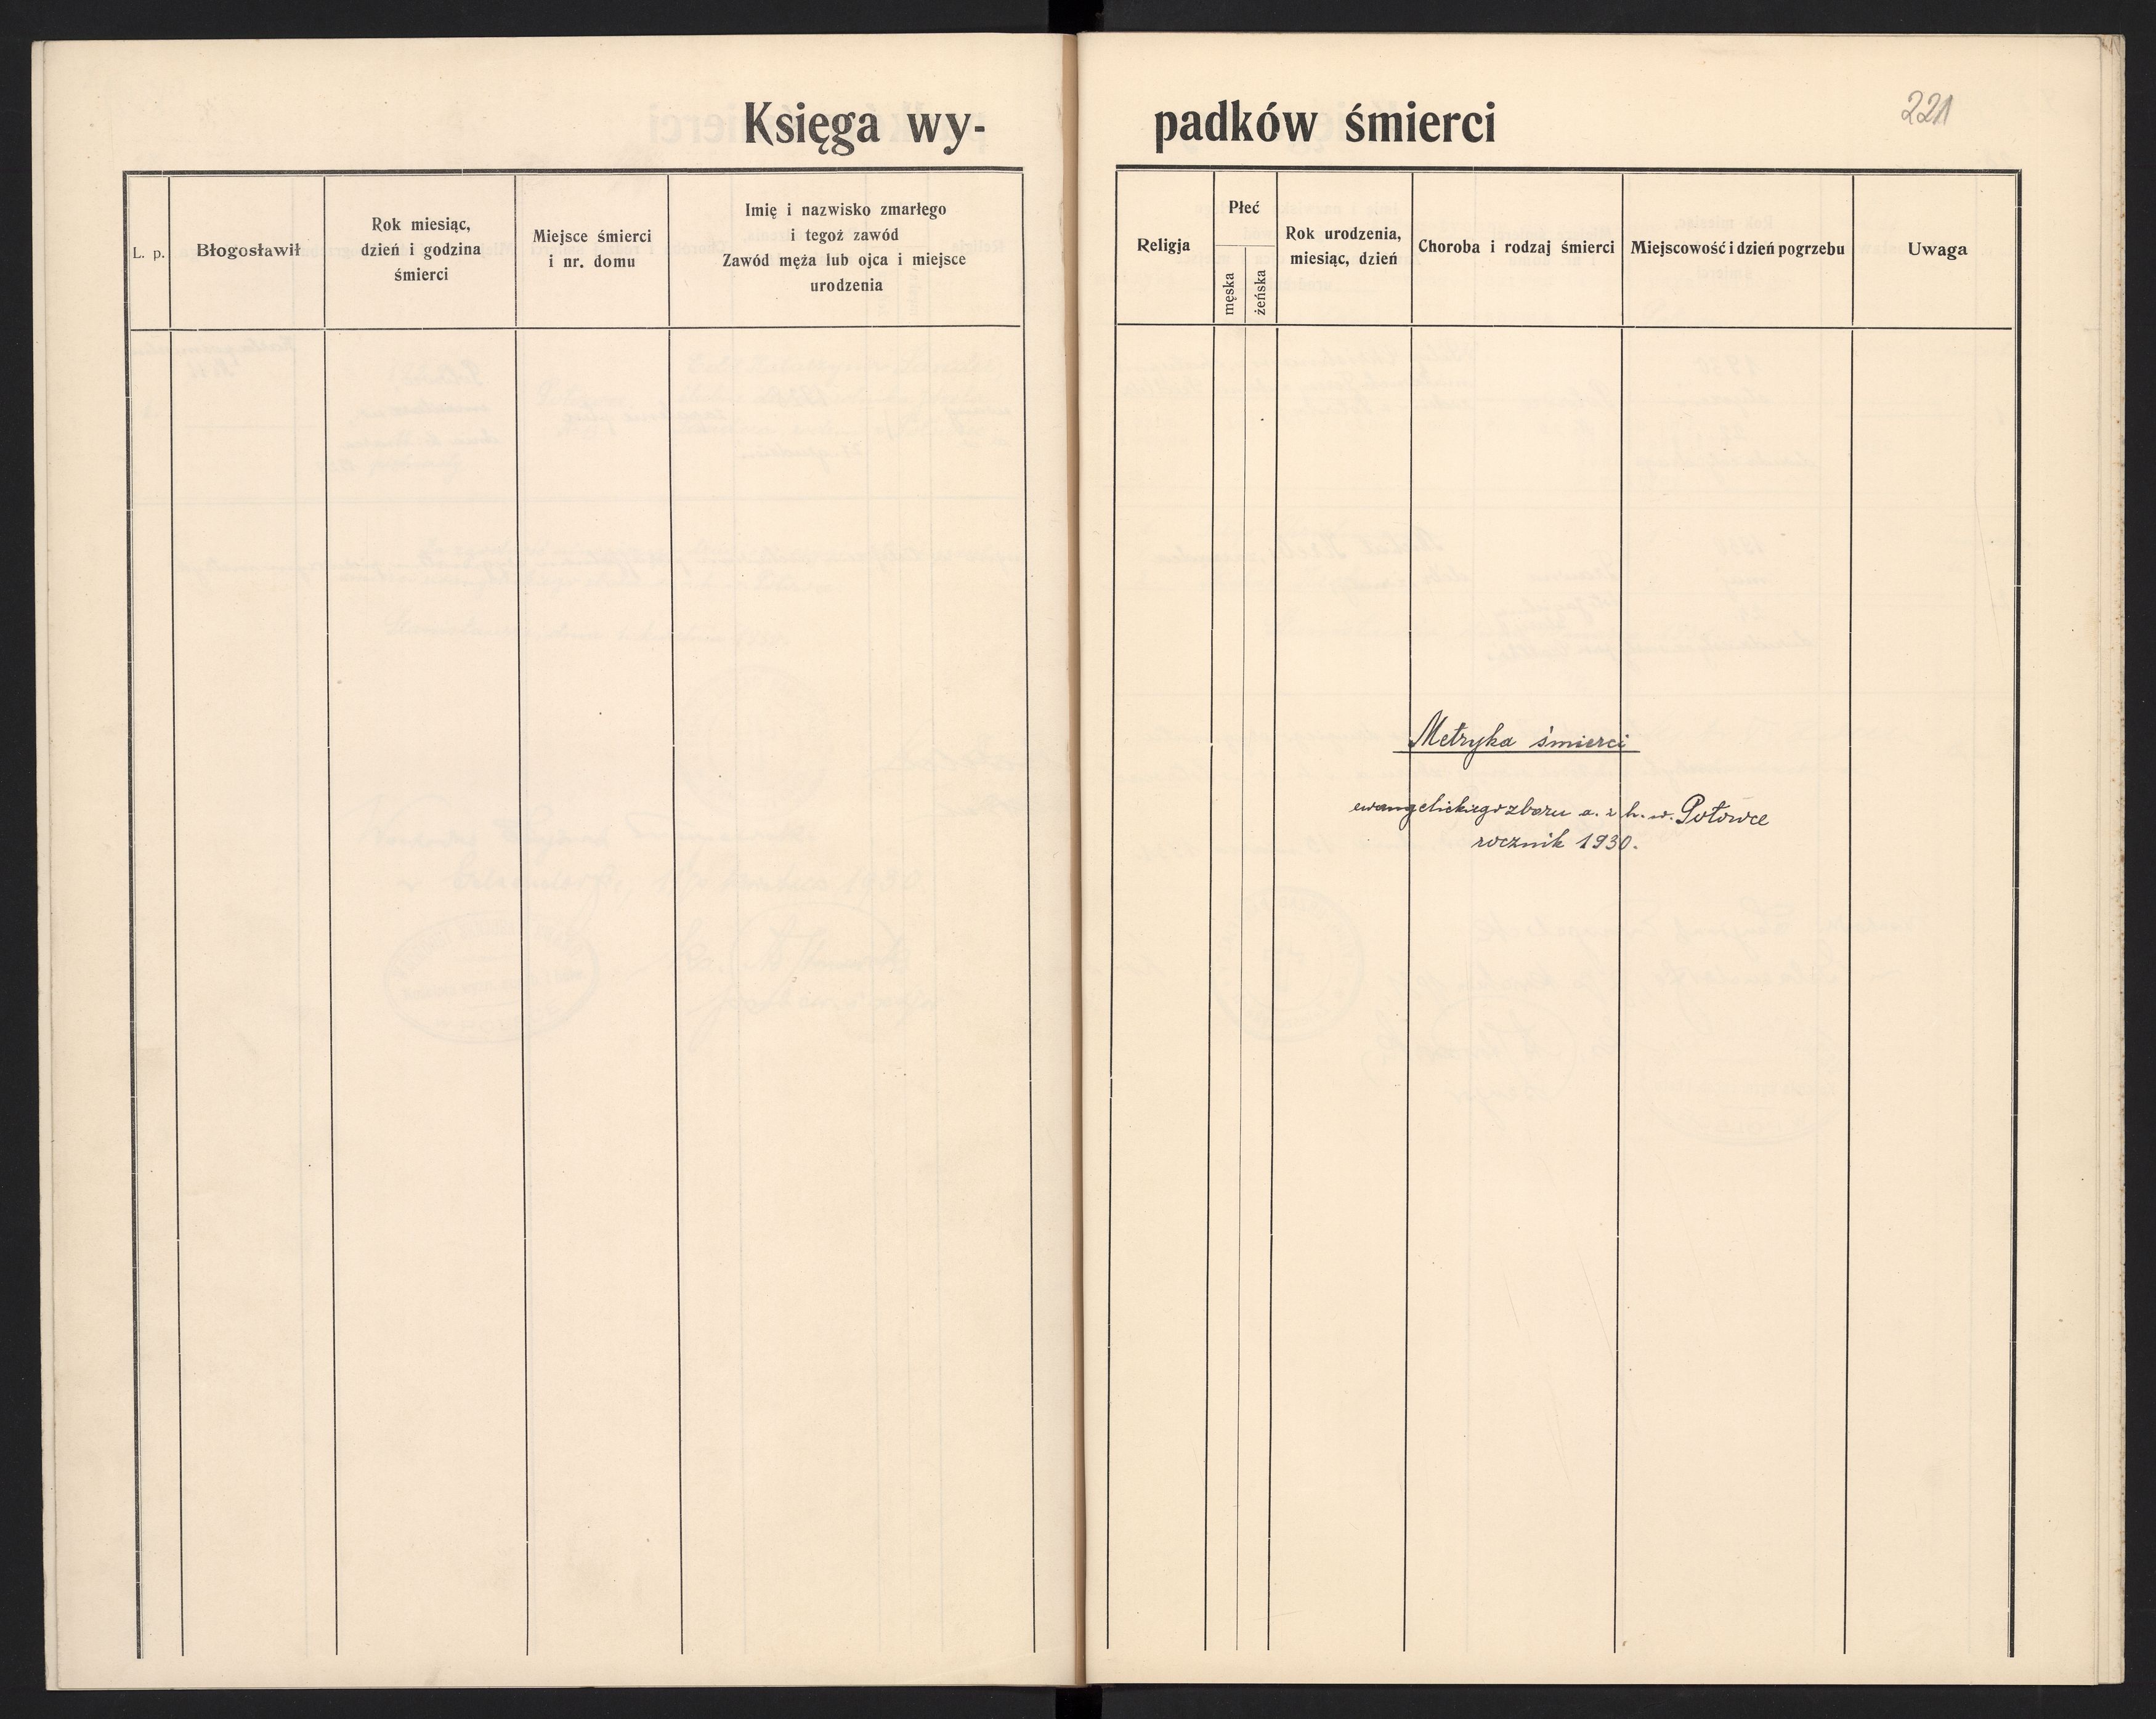 Księga wy-
L. p.
Błogosławił
Rok miesiąc,
dzień i godzina
śmierci
Miejsce śmierci
i nr. domu
Imię i nazwisko zmarłego
i tegoż zawód
Zawód męża lub ojca i miejsce
urodzenia
padków śmierci
221
Religja
Płeć
męska
żeńska
Rok urodzenia,
miesiąc, dzień
Choroba i rodzaj śmierci
Miejscowość i dzień pogrzebu
Uwaga
Metryka śmierci
ewangelickiego zboru a. i h. w. Potowce
rocznik 1930.